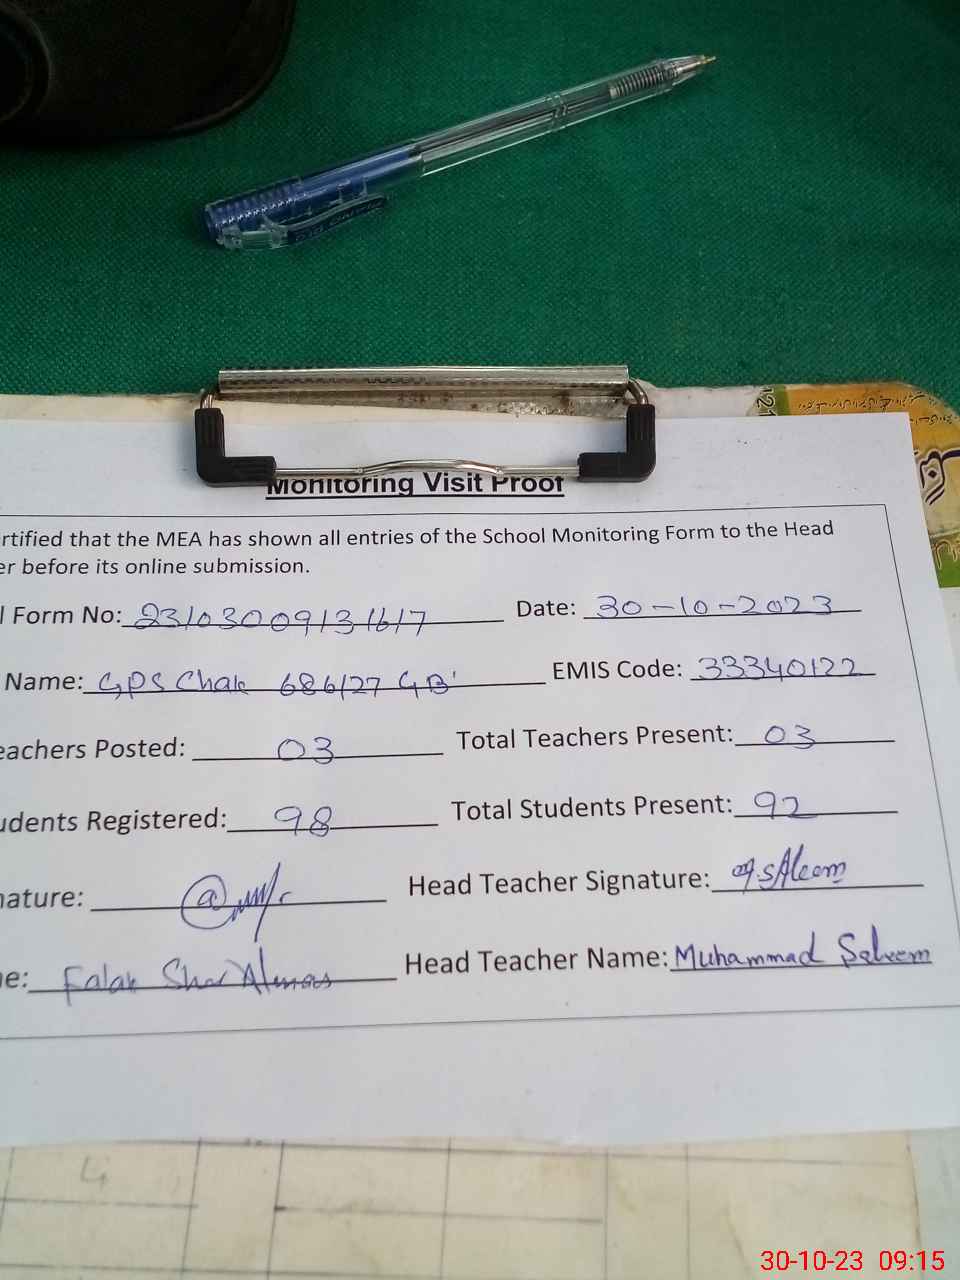 Monitoring Visit Proof
rtified that the MEA has shown all entries of the School Monitoring Form to the Head
er before its online submission.
l Form No: 2310300913 1617 Date: 30-10-2023
Name: GPS Chak 686/27 GB EMIS Code: 33340122
eachers Posted: 03 Total Teachers Present: 03
udents Registered: 98 Total Students Present: 92
nature: Head Teacher Signature: M.SAleem
e: Falak Sher Almas Head Teacher Name: Muhammad Saleem
4
30-10-23 09:15